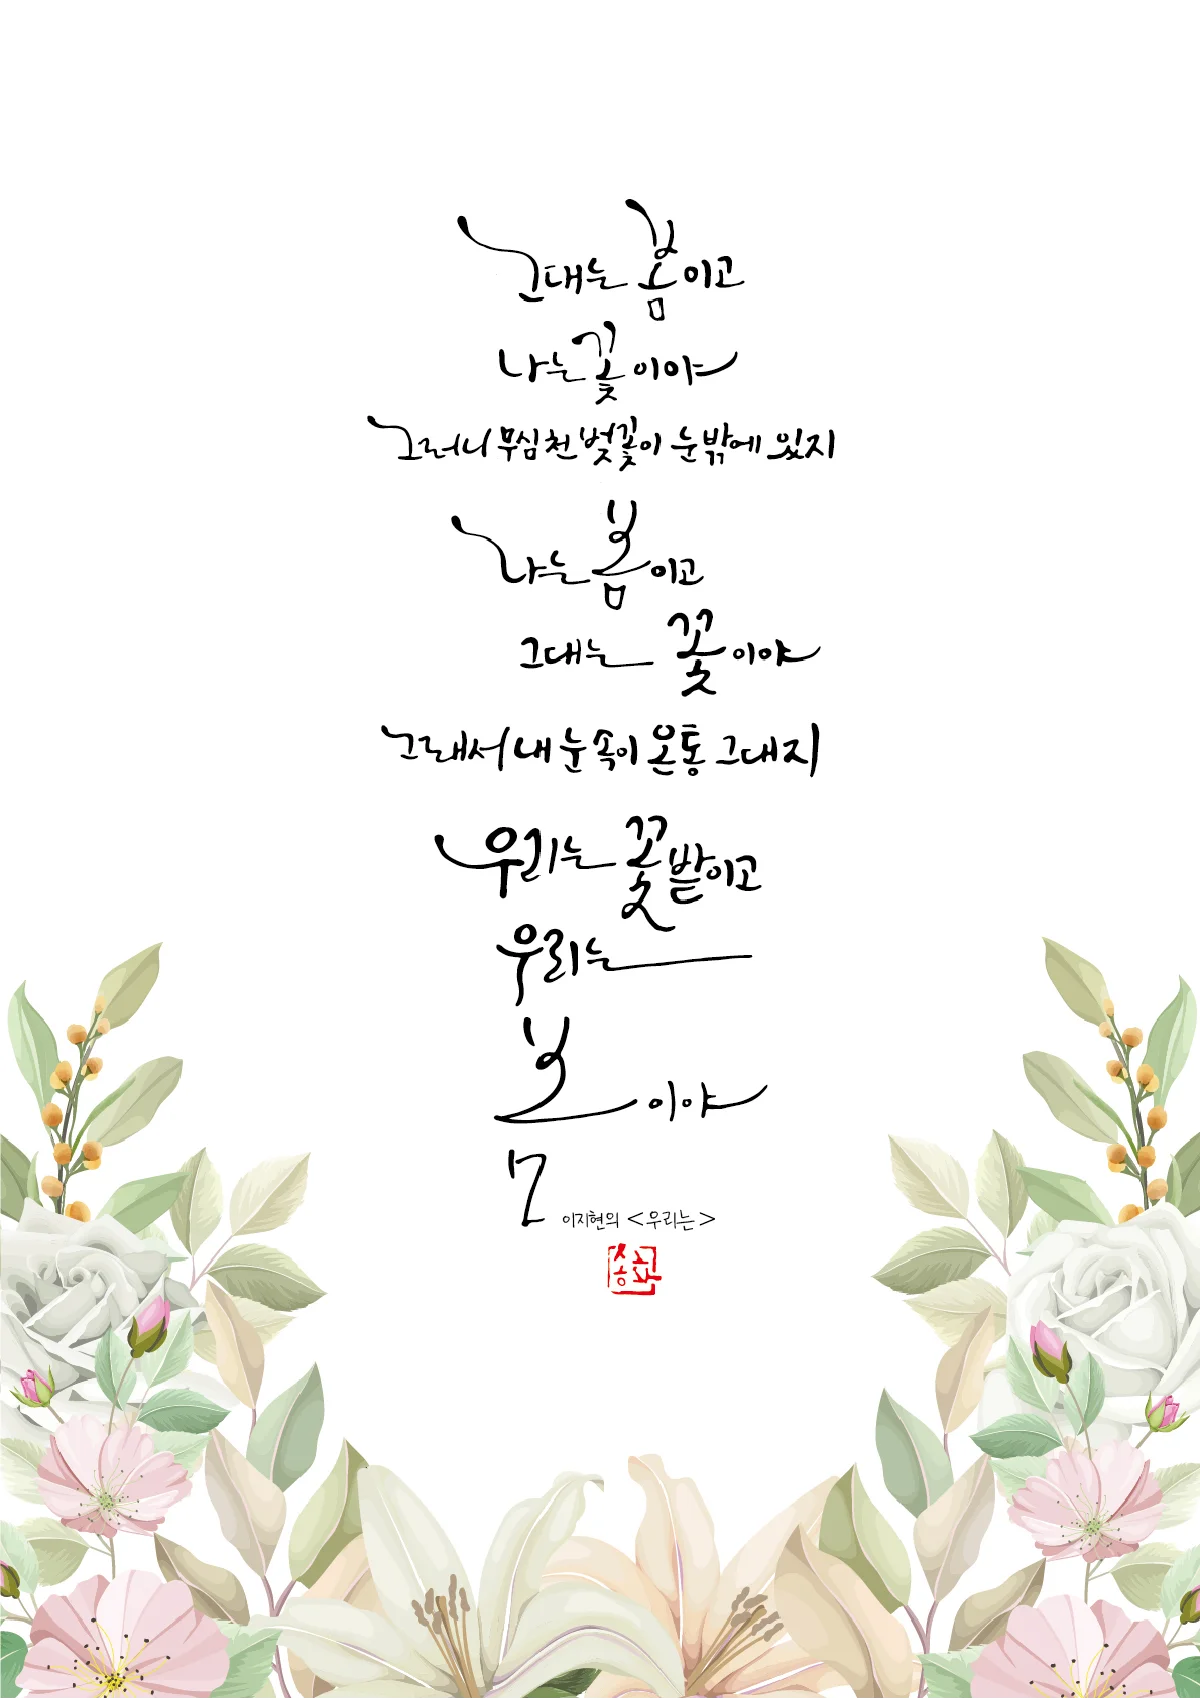 그대는 봄이고
나는 꽃이야
그러니 무심천 벚꽃이 눈밖에 있지
나는 봄이고
그대는 꽃이야
그래서 내 눈 속이 온통 그대지
우리는 꽃밭이고
우리는
봄이야
이지현의 <우리는>